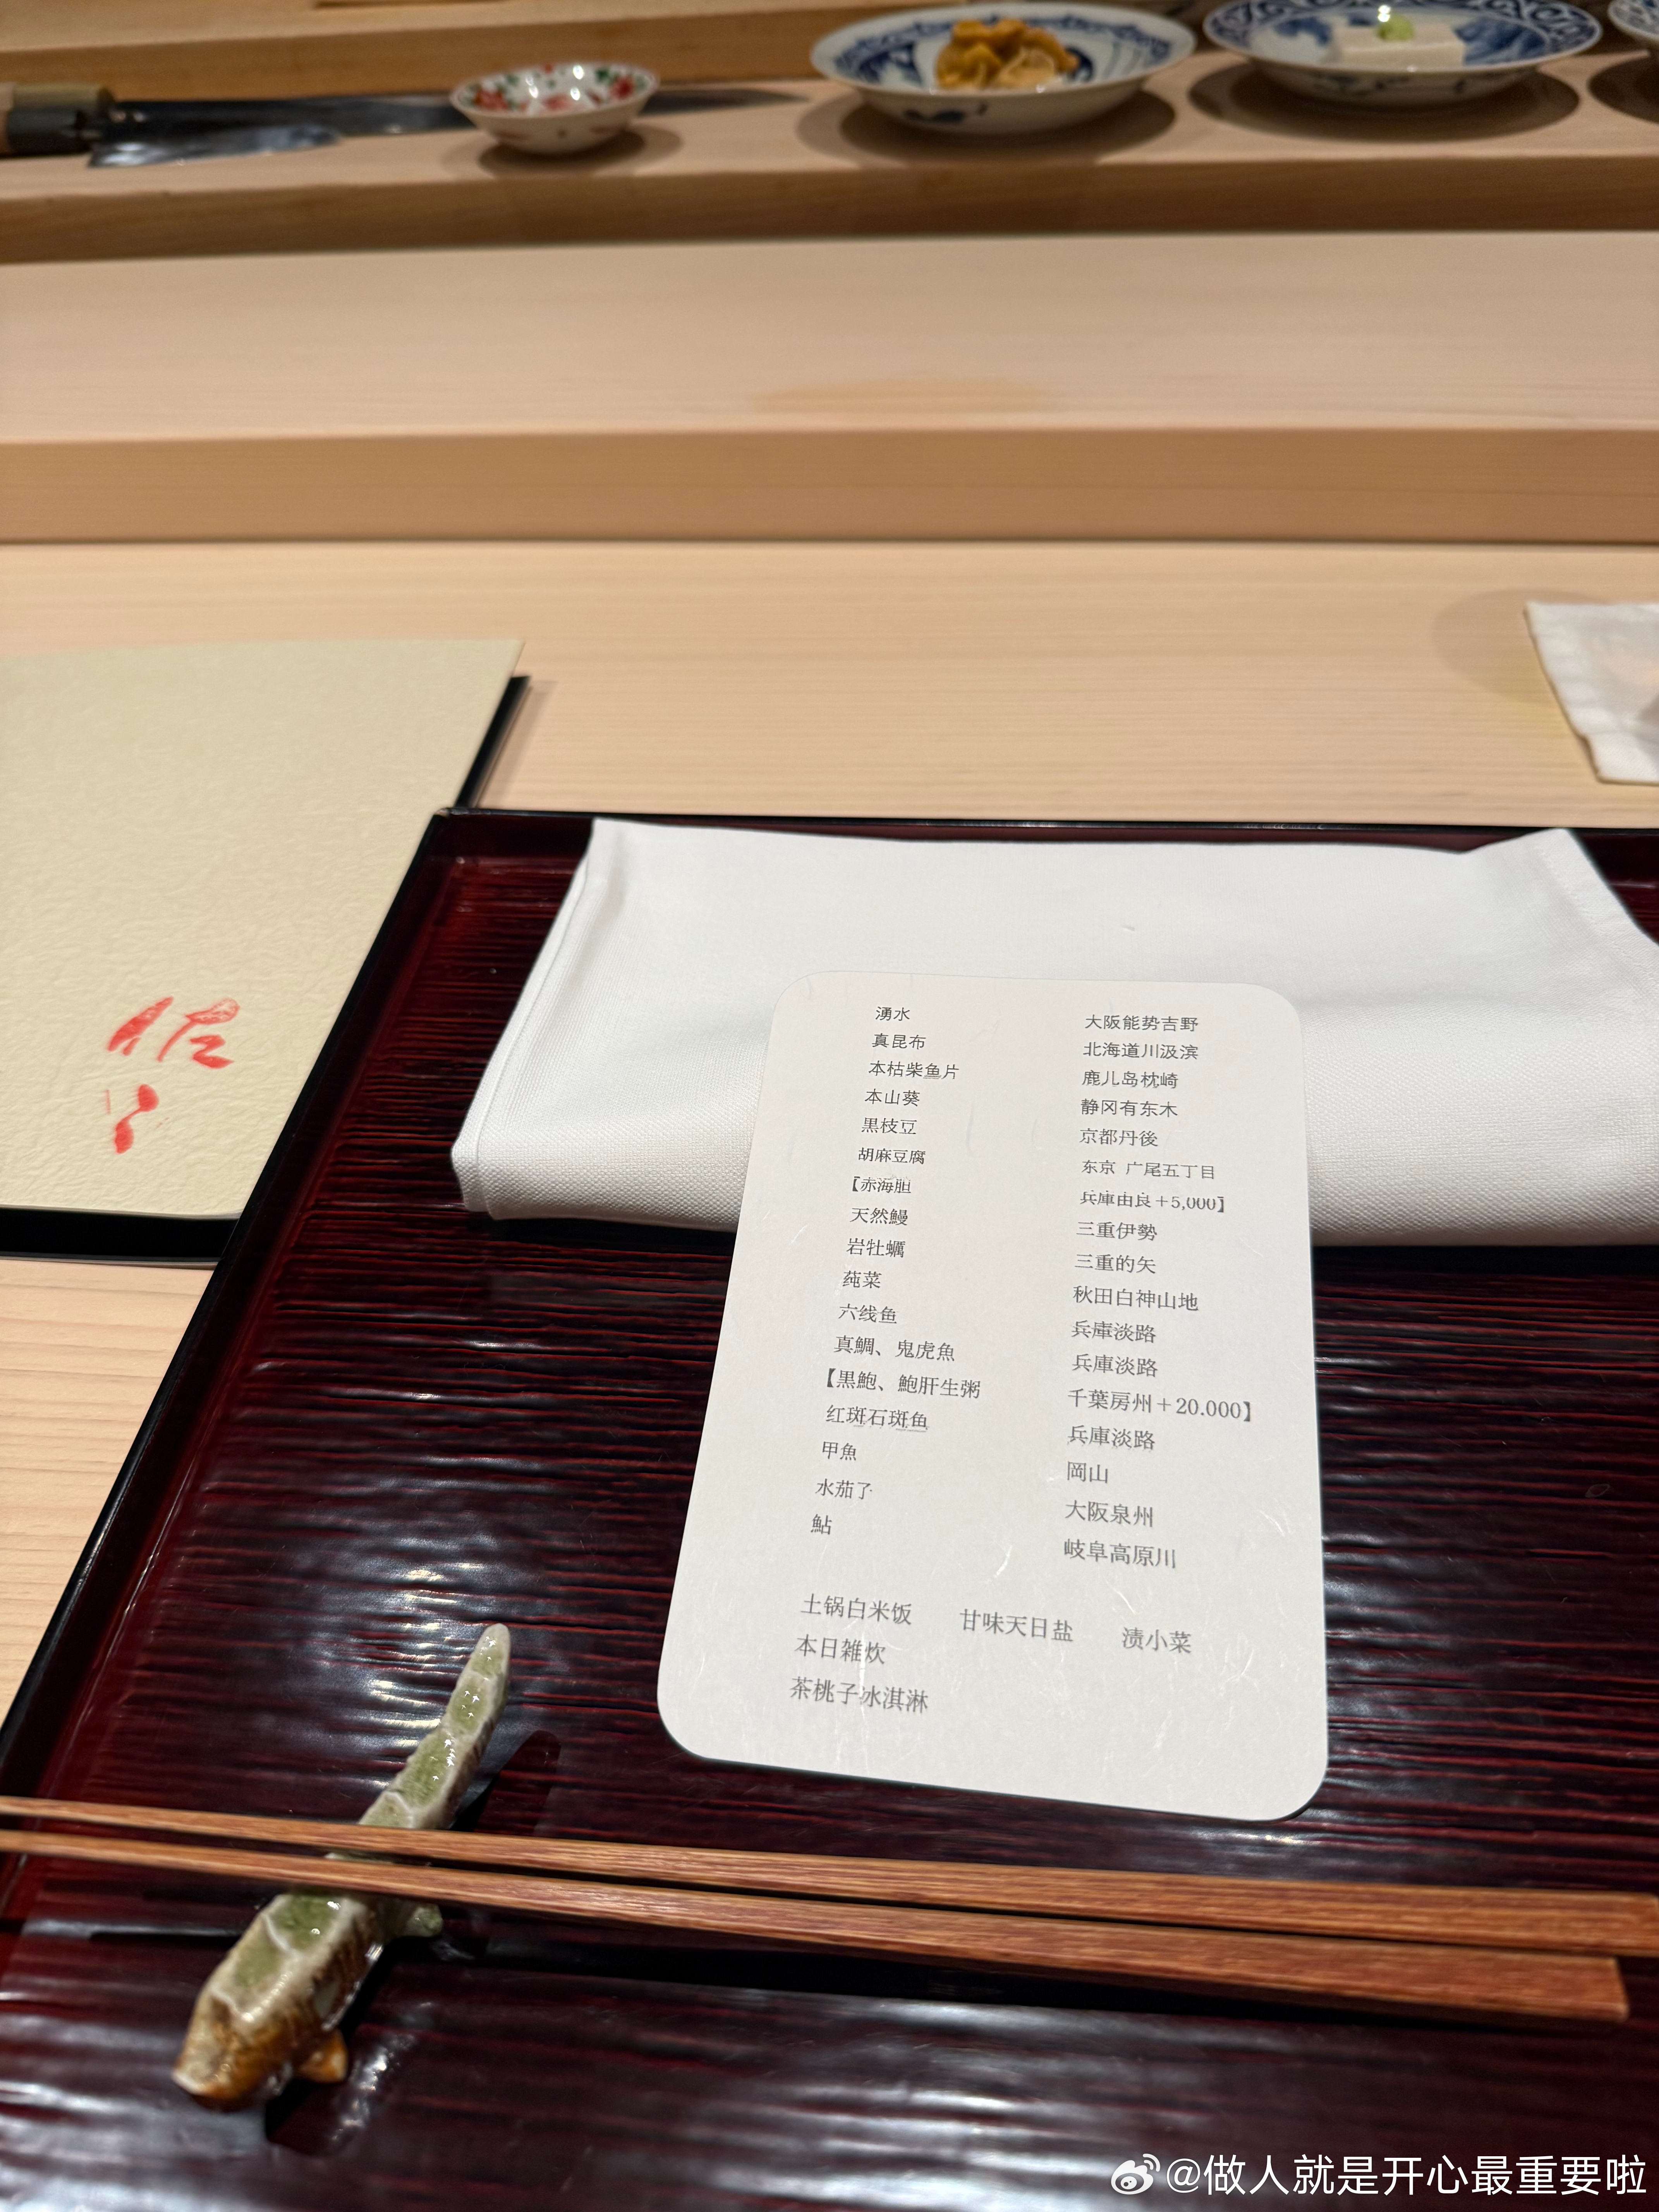 湧水 大阪能势吉野
真昆布 北海道川汲滨
本枯柴鱼片 鹿儿岛枕崎
本山葵 静冈有东木
黒枝豆 京都丹後
胡麻豆腐 东京 广尾五丁目
【赤海胆 兵庫由良＋5,000】
天然鳗 三重伊勢
岩牡蠣 三重的矢
莼菜 秋田白神山地
六线鱼 兵庫淡路
真鯛、鬼虎魚 兵庫淡路
【黒鮑、鮑肝生粥 千葉房州＋20.000】
红斑石斑鱼 兵庫淡路
甲魚 岡山
水茄子 大阪泉州
鮎 岐阜高原川
土锅白米饭 甘味天日盐 渍小菜
本日雑炊
茶桃子冰淇淋
@做人就是开心最重要啦